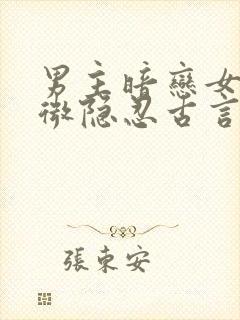 男主暗戀女
微隐忍古言
張束安